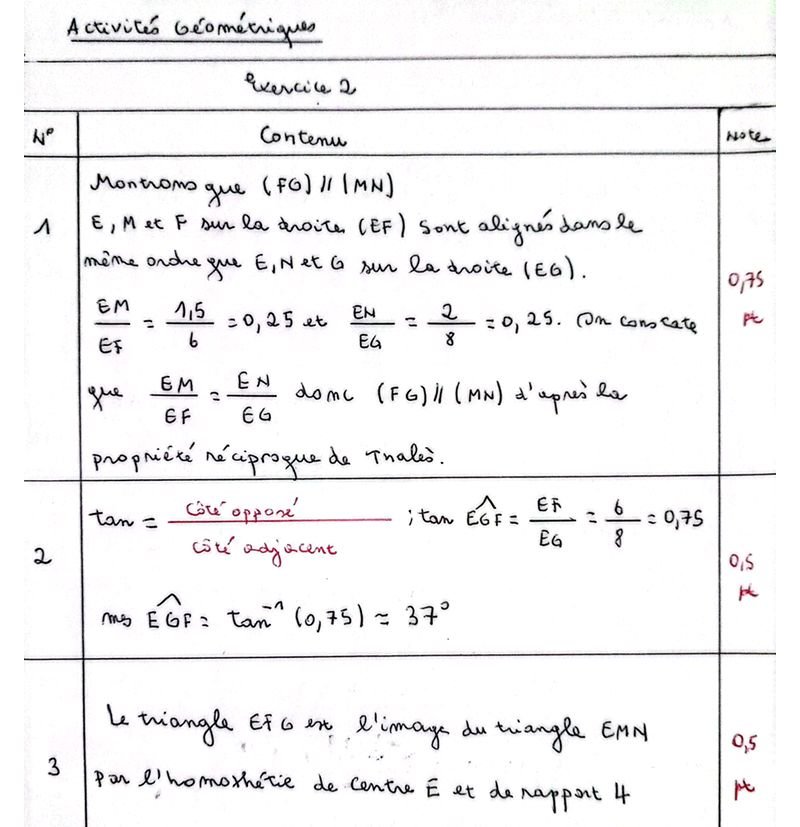 Activités Géométriques
Exercice 2
N° Contenu Note
1
Montrons que (FG) // (MN)
E, M et F sur la droite (EF) sont alignés dans le
même ordre que E, N et G sur la droite (EG).
EM/EF = 1,5/6 = 0,25 et EN/EG = 2/8 = 0,25. On constate
que EM/EF = EN/EG donc (FG) // (MN) d'après la
propriété réciproque de Thalès.
0,75
pt
2
tan = côté opposé/côté adjacent ; tan EGF = EF/EG = 6/8 = 0,75
mes EGF = tan⁻¹ (0,75) ≈ 37°
0,5
pt
3
Le triangle EFG est l'image du triangle EMN
Par l'homothétie de centre E et de rapport 4
0,5
pt